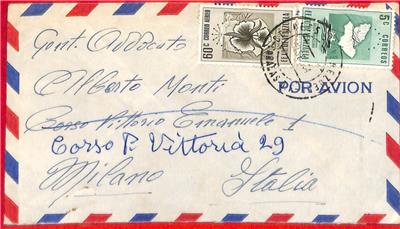 Gent. Avvocato
Alberto Monti
Corso Vittorio Emanuele I
Corso P. Vittoria 29
Milano Italia
POR AVION
60 C CORREO AEREO
5 C CORREOS